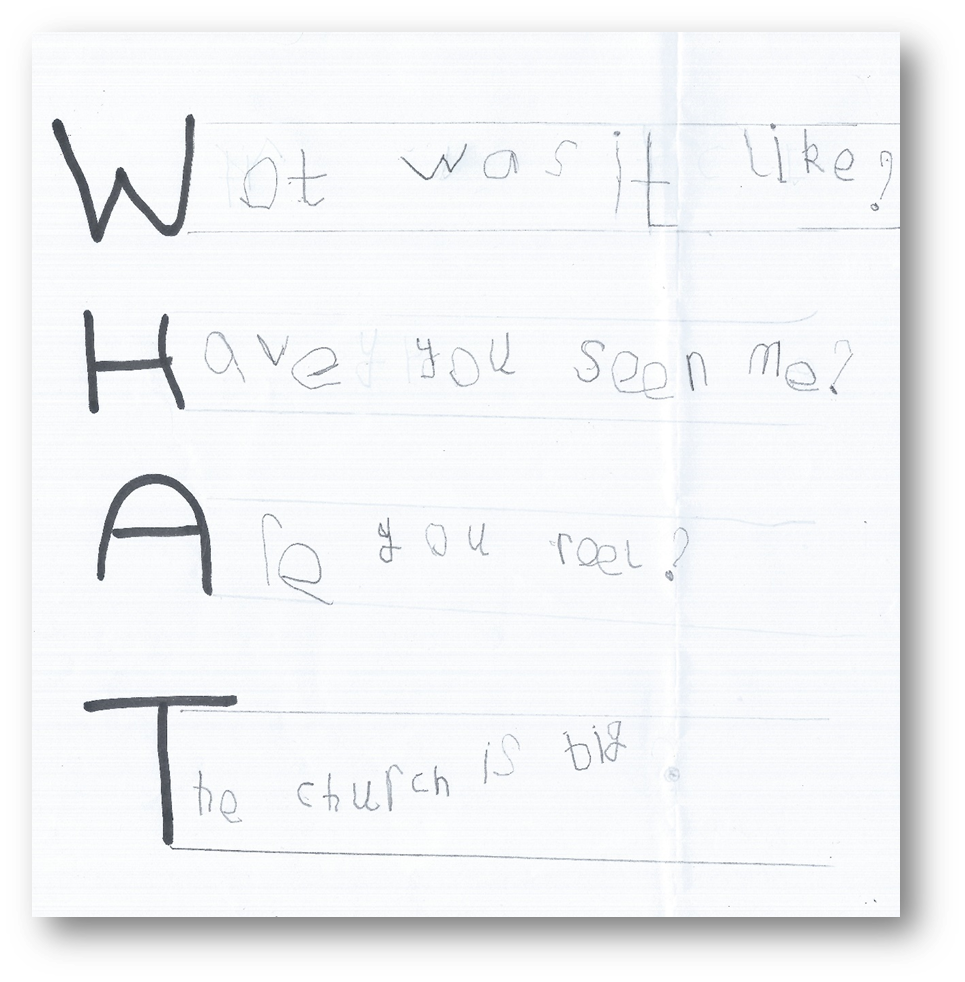 Wot was it like?
Have you seen me?
Are you reel?
The church is big.